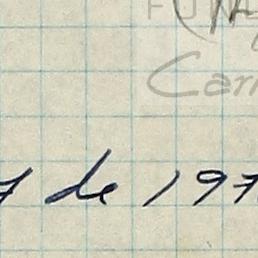 FUN
Car
de 197